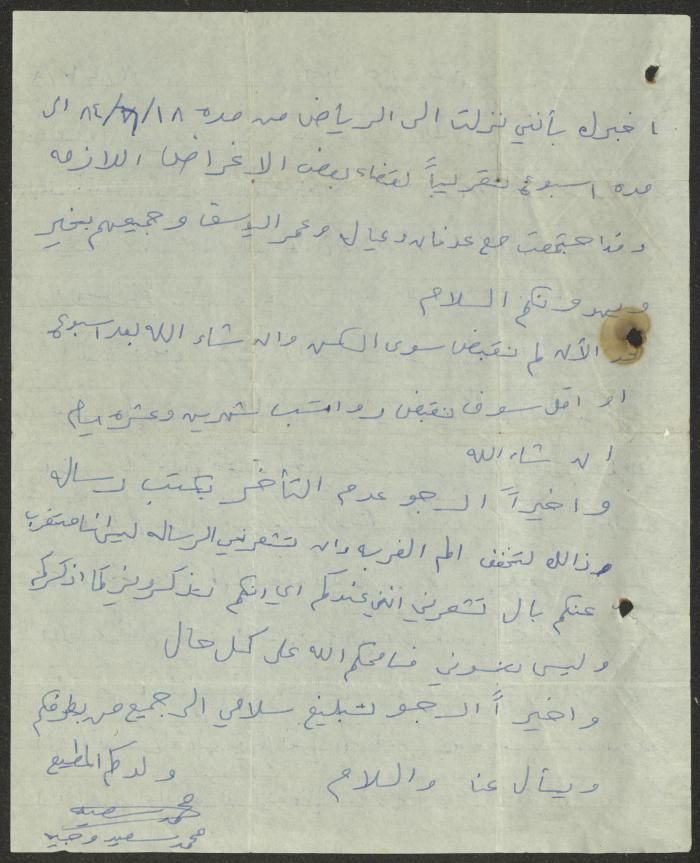 اخبرك بأنني نزلت الى الرياض من مده ١٨/ /٨٤ الى
مده اسبوع تقريباً لقضاء بعض الاغراض اللازمه
وقد اجتمعت مع عدنان وعيال وعمر وجميعهم بخير
ويهدونكم السلام
الأن لم نقبض سوى السكن وان شاء الله بعد اسبوع
او اقل سوف نقبض رواتب لشهرين وعشره ايام
ان شاء الله
واخيراً ارجو عدم التأخر بكتب رساله
وذالك لتخفف الم الغربه وان تشعرني الرساله ليس انا متغرب
عنكم بال تشعرني انني عندكم اي انكم تذكروني كما اذكركم
وليس تنسوني فسامحكم الله على كل حال
واخيراً ارجو تبليغ سلامي الى جميع من بطرفكم
ويسأل عنا والسلام ولدكم المطيع
محمد سعيد
محمد سعيد وجيه